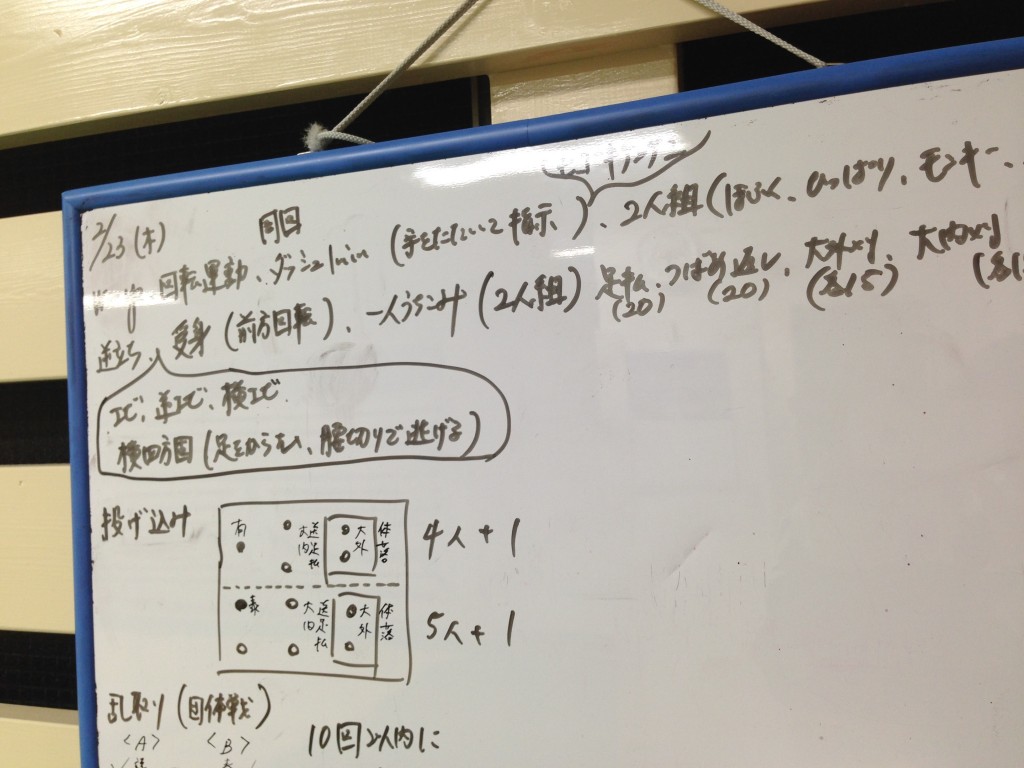 2/23(木)
回転運動、ダッシュ1min(手をたたいて指示)、2人組(ほふく、ひっぱり、モンキー、
逆立ち 受身(前方回転)、一人うちこみ(2人組)足払、つばめ返し、大外刈、大内刈
(20) (20) (各15) (各1
エビ、逆エビ、横エビ
横四方固(足をからむ、腰切りで逃げる)
投げ込み
大内 送足払 大外 体落
4人+1
大内 送足払 大外 体落
5人+1
乱取り(団体戦)
<A> <B>
10回以内に